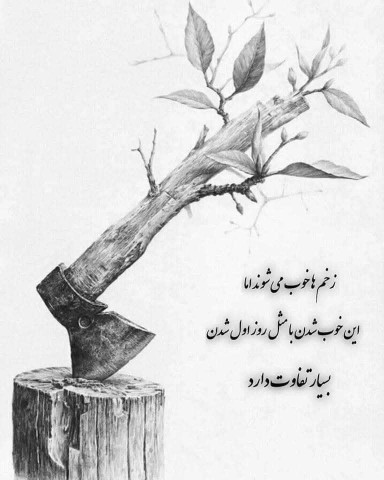 زخم ها خوب می شوند اما
این خوب شدن با مثل روز اول شدن
بسیار تفاوت دارد